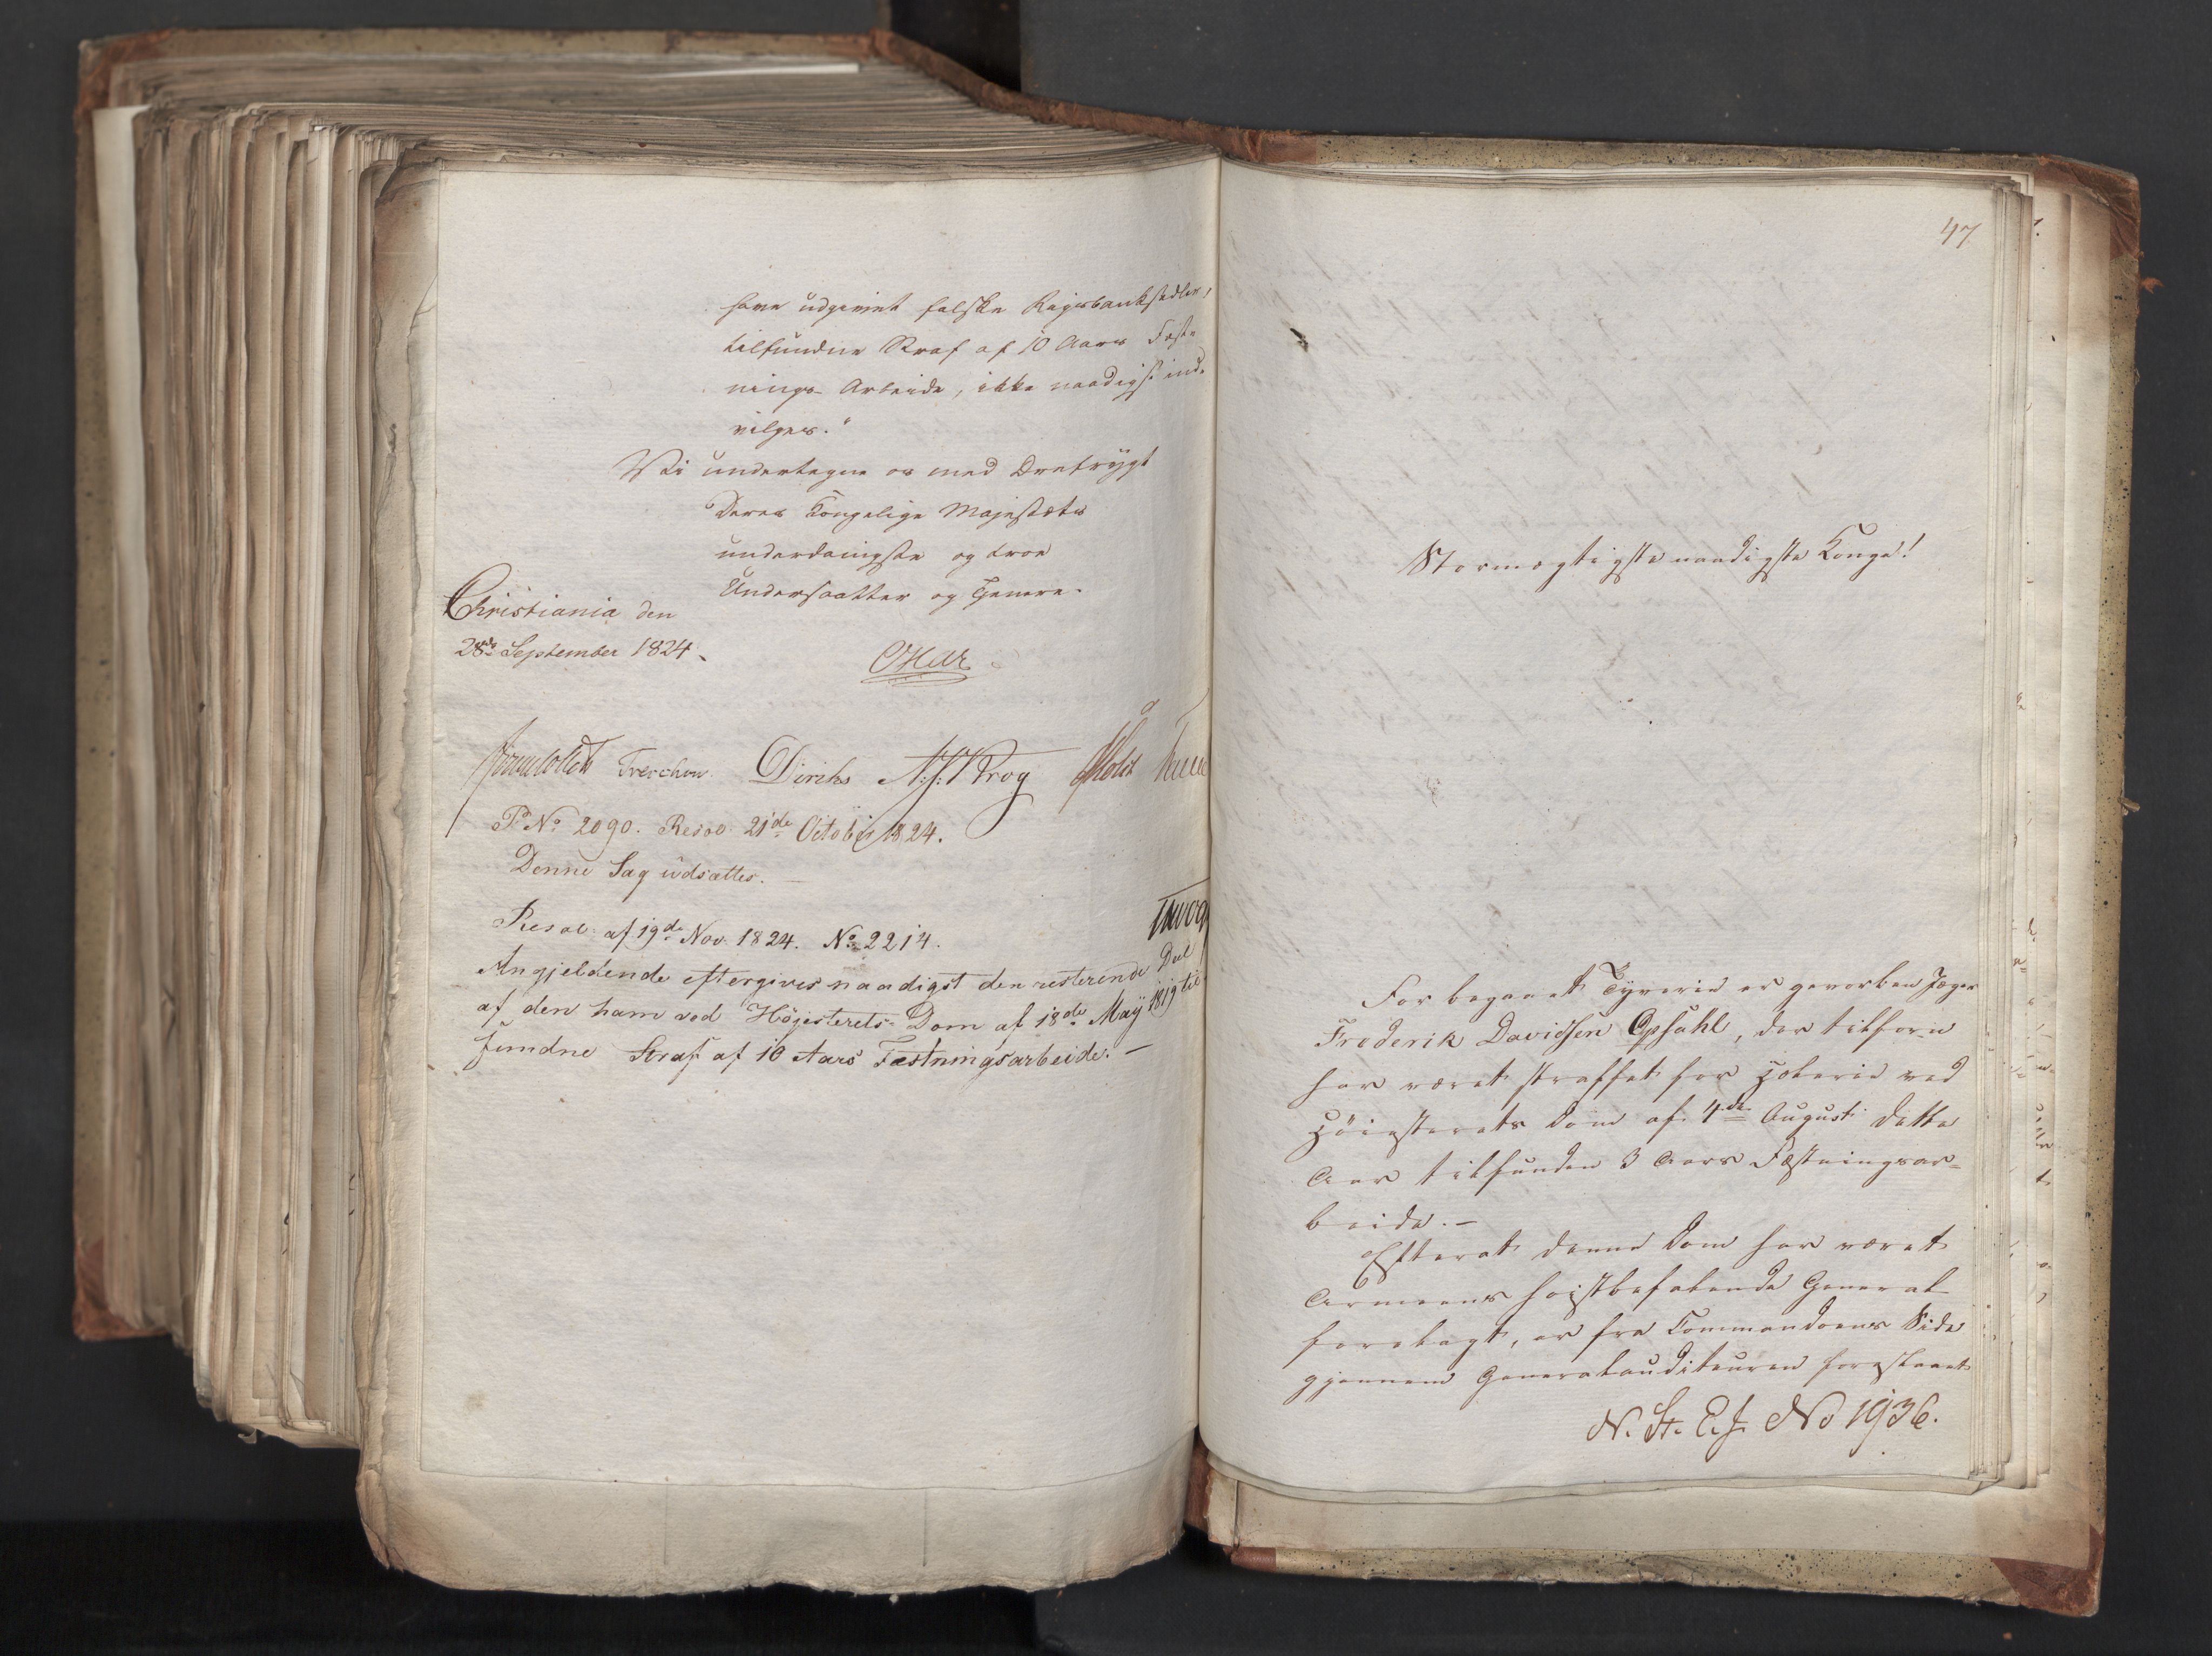 have udgivet falske Rigsbanksedler,
tilfundne Straf af 10 Aars Fæst-
nings-Arbeide, ikke naadigst ind-
vilges."
Vi undertegne os med Drefrygt
Deres Kongelige Majestæts
underdanigste og troe
Undersaatter og Tjenere.
Christiania den
28de September 1824.
Treschow Diriks Krog Holst
Pd No 2090. Resol. 21de Octobr 1824.
Denne Sag udsættes.
Resol. af 19de Nov. 1824. No 2214.
Angjeldende eftergives naadigst den resterende Deel
af den ham ved Höjesterets-Dom af 18de May 1819 til-
fundne Straf af 10 Aars Fæstningsarbeide. —
47
Stormægtigste naadigste Konge!
For begaaet Tyverie er gevorben Jæger
Frederik Davidsen Opsahl, der tilforn
har været straffet for Hælerie ved
Höiesterets Dom af 4de August dette
Aar tilfunden 3 Aars Fæstningsar-
beide. —
Efterat denne Dom har været
Armeens høistbefalende General
forelagt, er fra Commandoens Side
gjennem Generalauditeuren foreslaaet
N. St. E. J. No 1936.